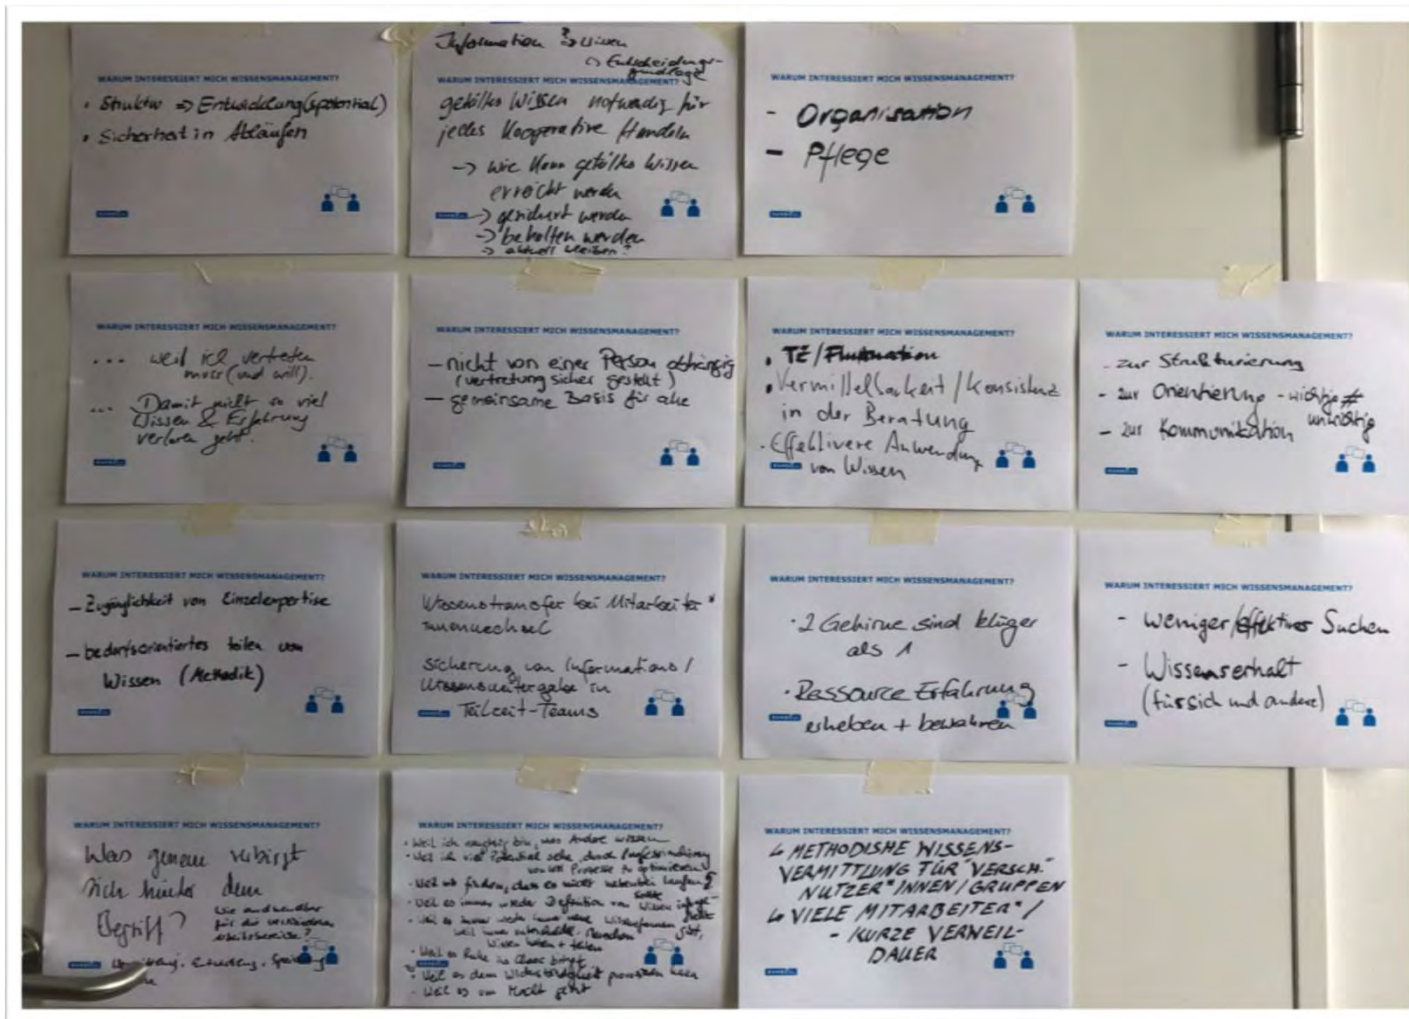 WARUM INTERESSIERT MICH WISSENSMANAGEMENT?
• Struktur => Entwicklung(spotential)
• Sicherheit in Abläufen
Information Wissen
Entscheidungs-
grundlage
WARUM INTERESSIERT MICH WISSENSMANAGEMENT?
geteiltes Wissen notwendig für
jedes kooperative Handeln
-> wie kann geteiltes Wissen
erreicht werden
-> gesichert werden
-> behalten werden
-> aktuell bleiben?
WARUM INTERESSIERT MICH WISSENSMANAGEMENT?
- Organisation
- Pflege
WARUM INTERESSIERT MICH WISSENSMANAGEMENT?
... weil ich vertreten
muss (und will).
... Damit nicht so viel
Wissen & Erfahrung
verloren geht.
WARUM INTERESSIERT MICH WISSENSMANAGEMENT?
- nicht von einer Person abhängig
(vertretung sicher gestellt)
- gemeinsame Basis für alle
WARUM INTERESSIERT MICH WISSENSMANAGEMENT?
• TZ/Fluktuation
• Vermittelbarkeit/Konsistenz
in der Beratung
• Effektivere Anwendung
von Wissen
WARUM INTERESSIERT MICH WISSENSMANAGEMENT?
- zur Strukturierung
- zur Orientierung - wichtig ≠
unwichtig
- zur Kommunikation
WARUM INTERESSIERT MICH WISSENSMANAGEMENT?
- Zugänglichkeit von Einzelexpertise
- bedarfsorientiertes teilen von
Wissen (Methodik)
WARUM INTERESSIERT MICH WISSENSMANAGEMENT?
Wissenstransfer bei Mitarbeiter*
innenwechsel
Sicherung von Informations/
Wissensweitergabe in
Teilzeit-Teams
WARUM INTERESSIERT MICH WISSENSMANAGEMENT?
• 2 Gehirne sind klüger
als 1
• Ressource Erfahrung
erheben + bewahren
WARUM INTERESSIERT MICH WISSENSMANAGEMENT?
- weniger/effektives Suchen
- Wissenserhalt
(für sich und andere)
WARUM INTERESSIERT MICH WISSENSMANAGEMENT?
Was genau verbirgt
sich hinter dem
Begriff?
Wie anwendbar
für die verschiedenen
Arbeitsbereiche?
WARUM INTERESSIERT MICH WISSENSMANAGEMENT?
• Weil ich neugierig bin, was Andere wissen
• Weil ich viel Potential sehe, durch
Prozesse zu optimieren
• Weil wir finden, dass es nicht nebenbei laufen
sollte
• Weil es immer wieder Definition von Wissen
• Weil es immer mehr neue Wissensformen gibt,
weil immer Menschen
Wissen haben + teilen
• Weil es Ruhe ins Chaos bringt
• Weil es dann Widerständigkeit provozieren kann
- Weil es um Macht geht
WARUM INTERESSIERT MICH WISSENSMANAGEMENT?
↳ METHODISHE WISSENS-
VERMITTLUNG FÜR "VERSCH."
NUTZER*INNEN/GRUPPEN
↳ VIELE MITARBEITER*/
- KURZE VERWEIL-
DAUER